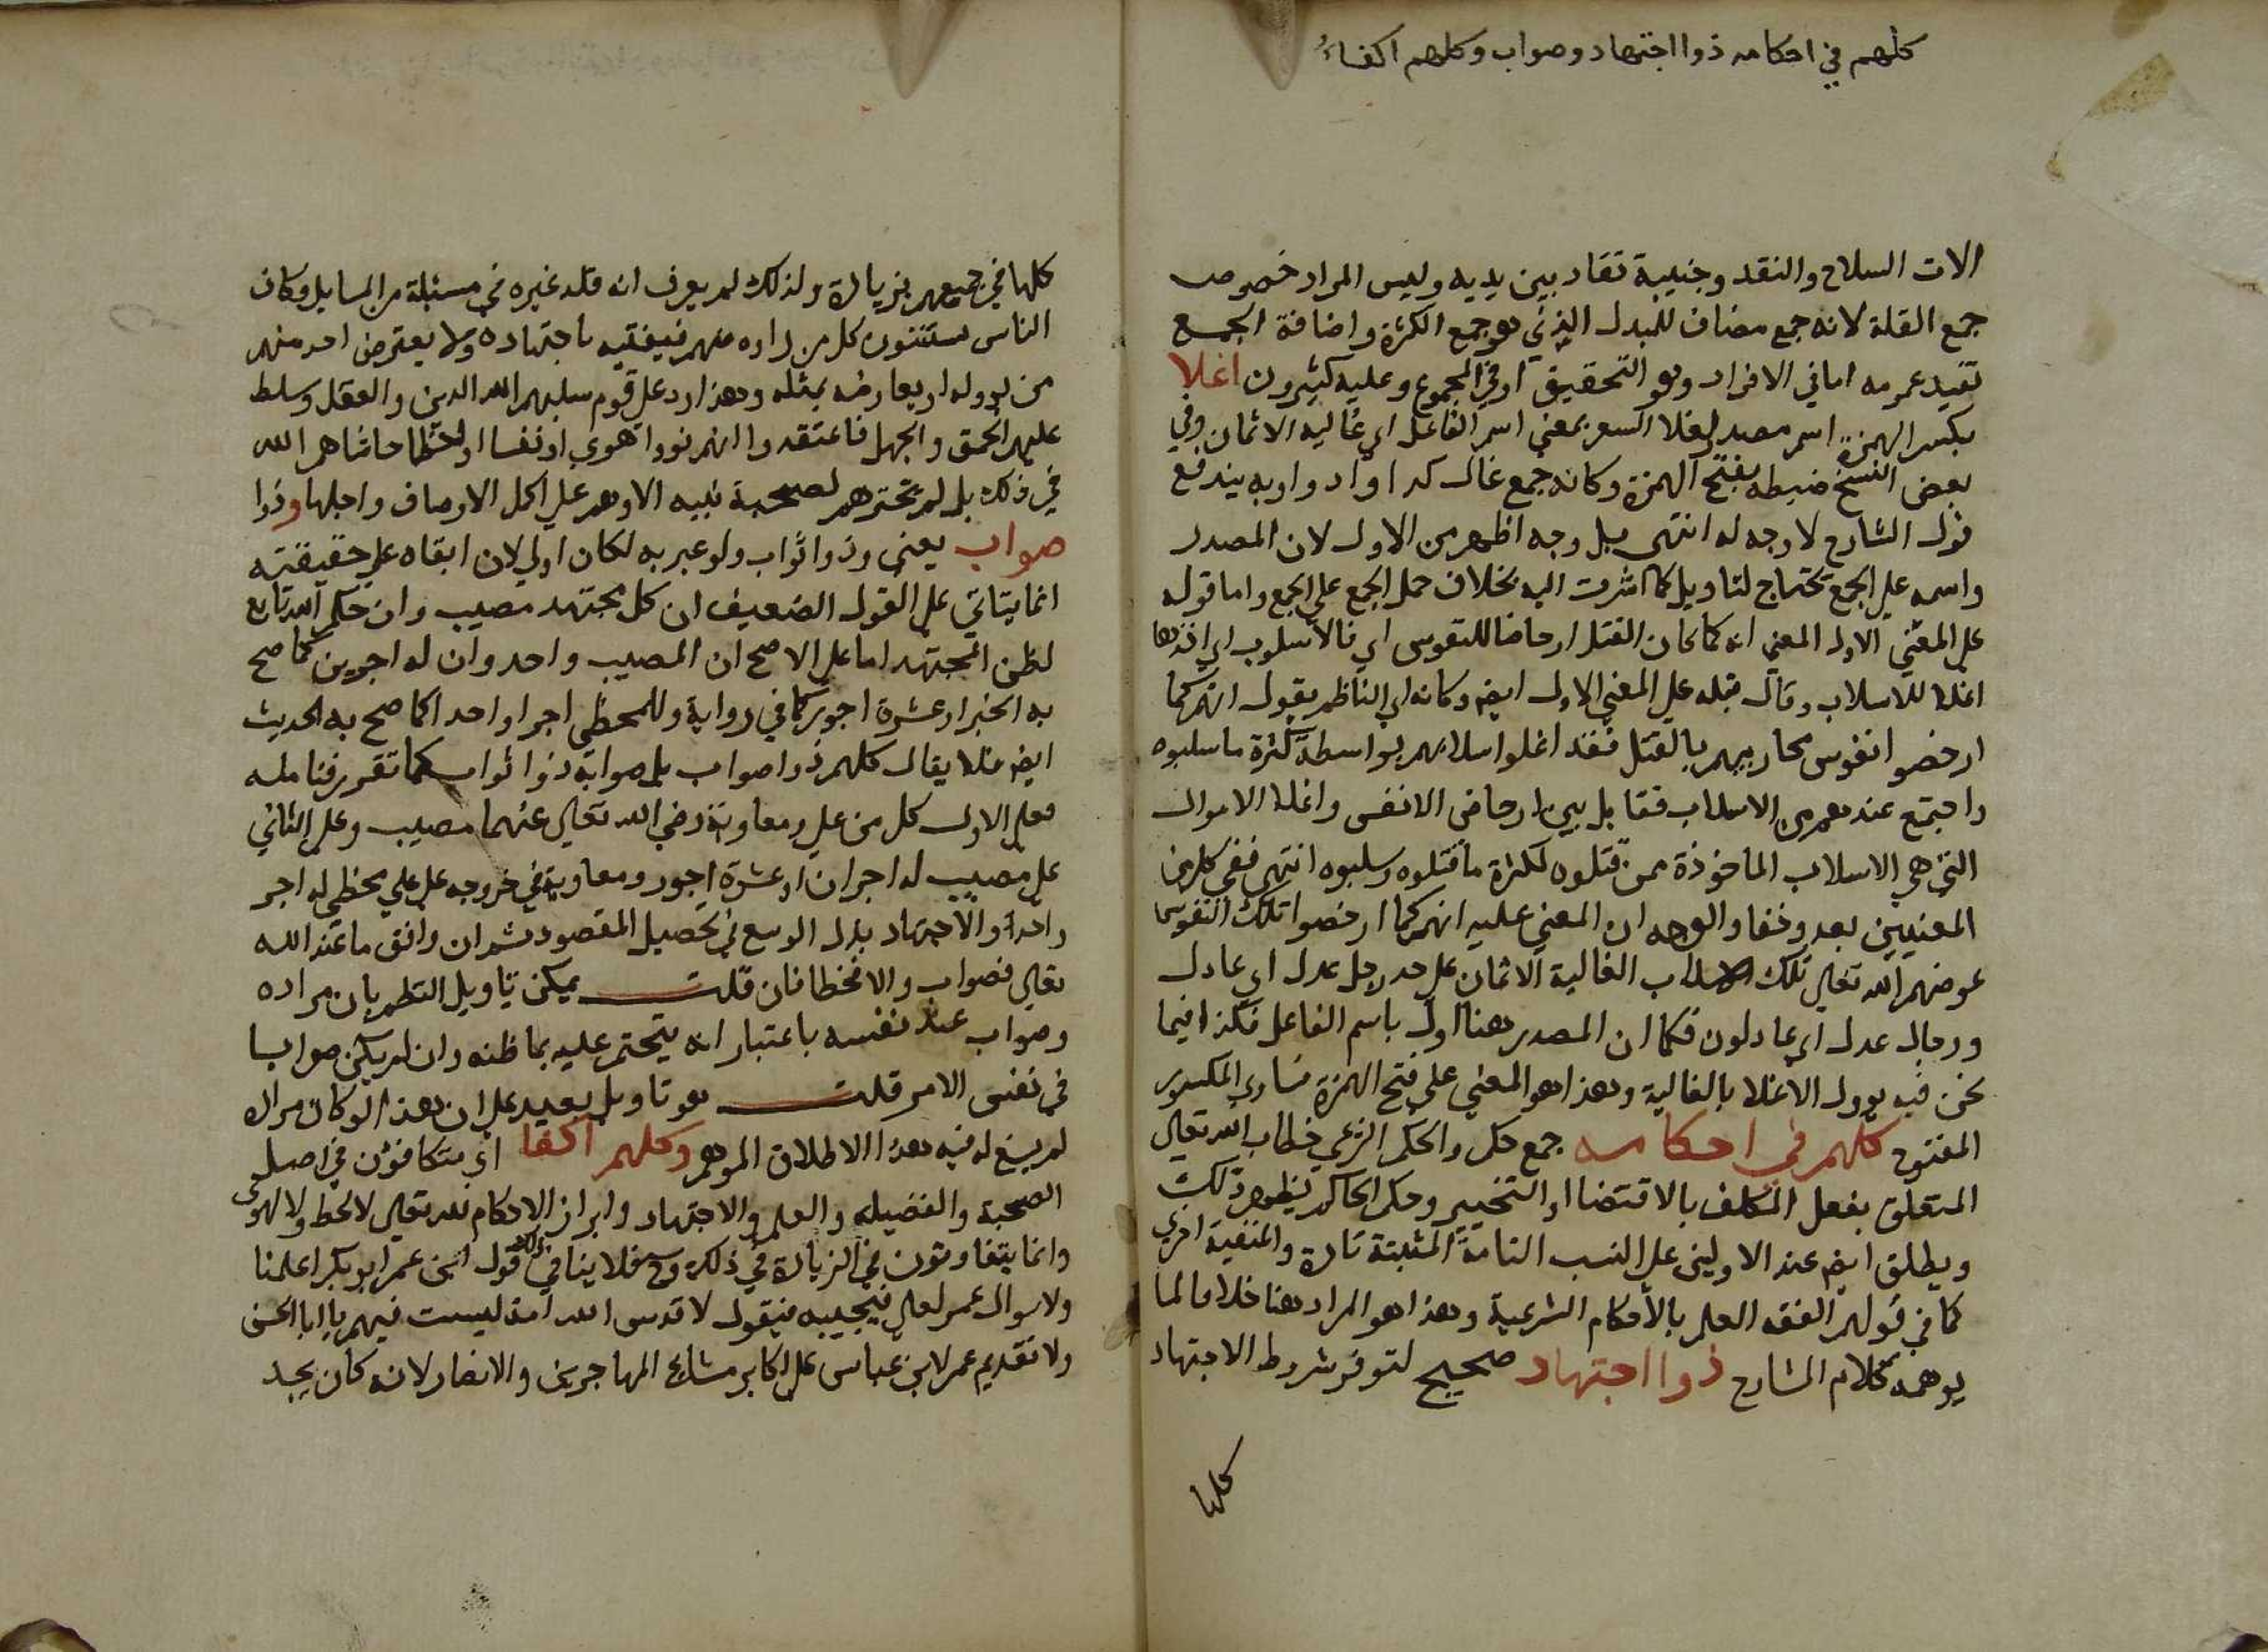 كلهم في احكامه ذوا اجتهاد وصواب وكلهم اكفاءُ
الات السلاح والنقد وجنيبة تقاد بين يديه وليس المراد خصوص
جمع القلة لانه جمع مضاف للبدل الذي هو جمع الكثرة واضافة الجمع
تفيد عمومه اما في الافراد وهو التحقيق او في المجموع وعليه كثيرون اغلا
بكسر الهمزة اسم مصدر لغلا السعر بمعني اسم الفاعل اي غاليه الاثمان وفي
بعض النسخ ضبطه بفتح الهمزة وكانه جمع غال كـ واد واودا وبه يندفع
قول الشارح لا وجه له انتهى بل وجه اظهر من الاول لان المصدر
واسمه على الجمع تحتاج لتاويل كما اشرت اليه بخلاف حمل الجمع على الجمع واما قوله
على المعني الاول المعني انه كما كان القتل ارخاصا للنفوس اي فالاسلوب اي اخذها
اغلا للاسلاب وقال قبله على المعني الاول ايضا وكانه اي الناظم يقول انهم كما
ارخصوا نفوس محاربيهم بالقتل فقد اغلوا اسلابهم بواسطة كثرة ما سلبوه
واجتمع عندهم من الاسلاب فقابل بين ارخاص الانفس واغلا الاموال
التي هي الاسلاب الماخوذة ممن قتلوه لكثرة ما قتلوه وسلبوه انتهى ففي كل من
المعنيين بعد وخفا والوجه ان المعني عليه انهم كما ارخصوا تلك النفوس
عوضهم الله تعالي تلك الاسلاب الغالية الاثمان على حد رجل عدل اي عادل
ورجال عدل اي عادلون فكما ان المصدر هنا اول باسم الفاعل فكذا فيما
نحن فيه يوول الاغلا بالغالية وهذا هو المعني على فتح الهمزة فساوي المكسور
المفتوح كلهم في احكامه جمع حكم والحكم الشرعي خطاب الله تعالي
المتعلق بفعل المكلف بالاقتضا او التخيير وحكم الحاكم يظهر ذلك
ويطلق ايضا عند الاوليين على النسب التامة المثبتة تارة والمنفية اخري
كما في قولهم الفقه العلم بالاحكام الشرعية وهذا هو المراد هنا خلافا لما
يوهمه كلام الشارح ذوا اجتهاد صحيح لتوفر شروط الاجتهاد
كلها
كلها في جميعهم بزيادة ولذلك لم يعرف انه قلد غيره في مسئلة من المسايل وكان
الناس يستفتون كل من راوه منهم فيفتيه باجتهاده ولا يعترض احد منهم
من لوله او يعارضه بمثله وهذا رد على قوم سلبهم الله الدين والعقل وسلط
عليهم الحمق والجهل فاعتقدوا انهم نووا هوي او نفسا او لحظا حاشاهم الله
في ذلك بل لم تخترهم لصحبة نبيه الا وهم على اكمل الاوصاف واجلها وذوا
صواب يعني وذوا ثواب ولو عبر به لكان اولي لان ابقاه على حقيقته
انما يتاتي على القول الضعيف ان كل مجتهد مصيب وان حكم الله تابع
لظن المجتهد اما على الاصح ان المصيب واحد وان له اجرين كما صح
به الخبر او عشرة اجور كما في رواية وللمخطي اجرا واحدا كما صح به الحديث
ايضا فلا يقال كلهم ذوا صواب بل صوابه ذوا ثواب كما تقرر فتامله
فعلى الاول كل من علي ومعاوية رضي الله تعالي عنهما مصيب وعلى الثاني
علي مصيب له اجران او عشرة اجور ومعاوية في خروجه على علي مخطي له اجر
واحد والاجتهاد بذل الوسع في تحصيل المقصود ثم ان وافق ما عند الله
تعالي فصواب والا فخطا فان قلت يمكن تاويل النظم بان مراده
وصواب عند نفسه باعتبار انه يتحتم عليه بما ظنه وان لم يكن صوابا
في نفس الامر قلت هو تاويل بعيد على ان هذا لو كان مراد
لم يسغ له فيه هذا الاطلاق الموهم وكلهم اكفا اي متكافؤن في اصل
الصحبة والفضيله والعلم والاجتهاد وابراز الاحكام لله تعالي لا لحظ ولا لهوي
وانما يتفاوتون في الزيادة في ذلك وح فلا ينافي ذلك قول ابن عمر ابو بكر اعلمنا
ولا سوال عمر لعلي فيجيبه فيقول لا قدس الله امة ليست فيهم يا ابا الحسن
ولا تقديم عمر لابن عباس على اكابر مشايخ المهاجرين والانصار لانه كان يجد